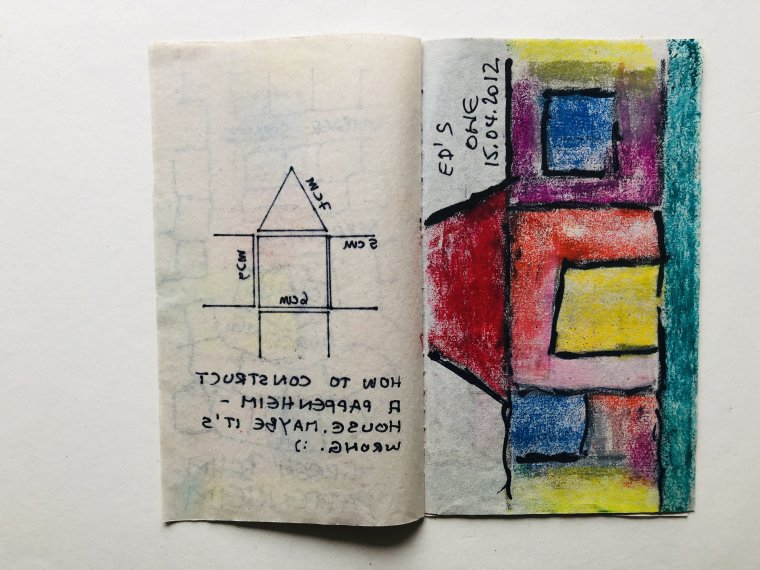 7cm
5 cm
6cm
HOW TO CONSTRUCT
A PAPPENHEIM -
HOUSE. MAYBE IT'S
WRONG. :)
ED'S
ONE
15.04.2012